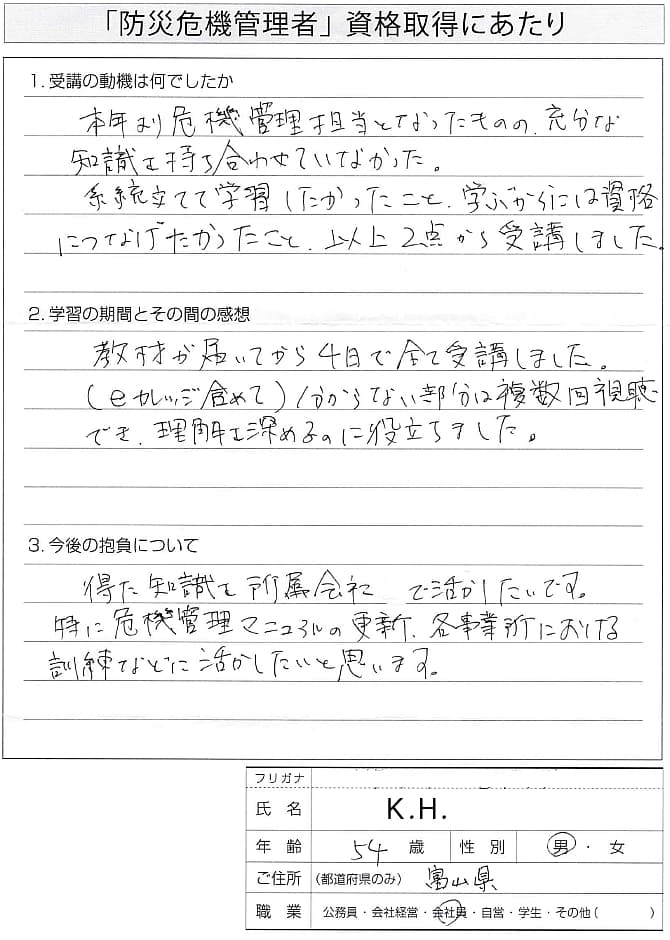 「防災危機管理者」資格取得にあたり
1. 受講の動機は何でしたか
本年より危機管理担当となったものの、充分な
知識を持ち合わせていなかった。
系統立てて学習したかったこと、学ぶからには資格
につなげたかったこと、以上2点から受講しました。
2. 学習の期間とその間の感想
教材が届いてから4日で全て受講しました。
(eカレッジ含めて)分からない部分は複数回視聴
でき、理解を深めるのに役立ちました。
3. 今後の抱負について
得た知識を所属会社 で活かしたいです。
特に危機管理マニュアルの更新、各事業所における
訓練などに活かしたいと思います。
フリガナ
氏名 K.H.
年齢 54 歳 性別 男・女
ご住所 (都道府県のみ) 富山県
職業 公務員・会社経営・会社員・自営・学生・その他( )